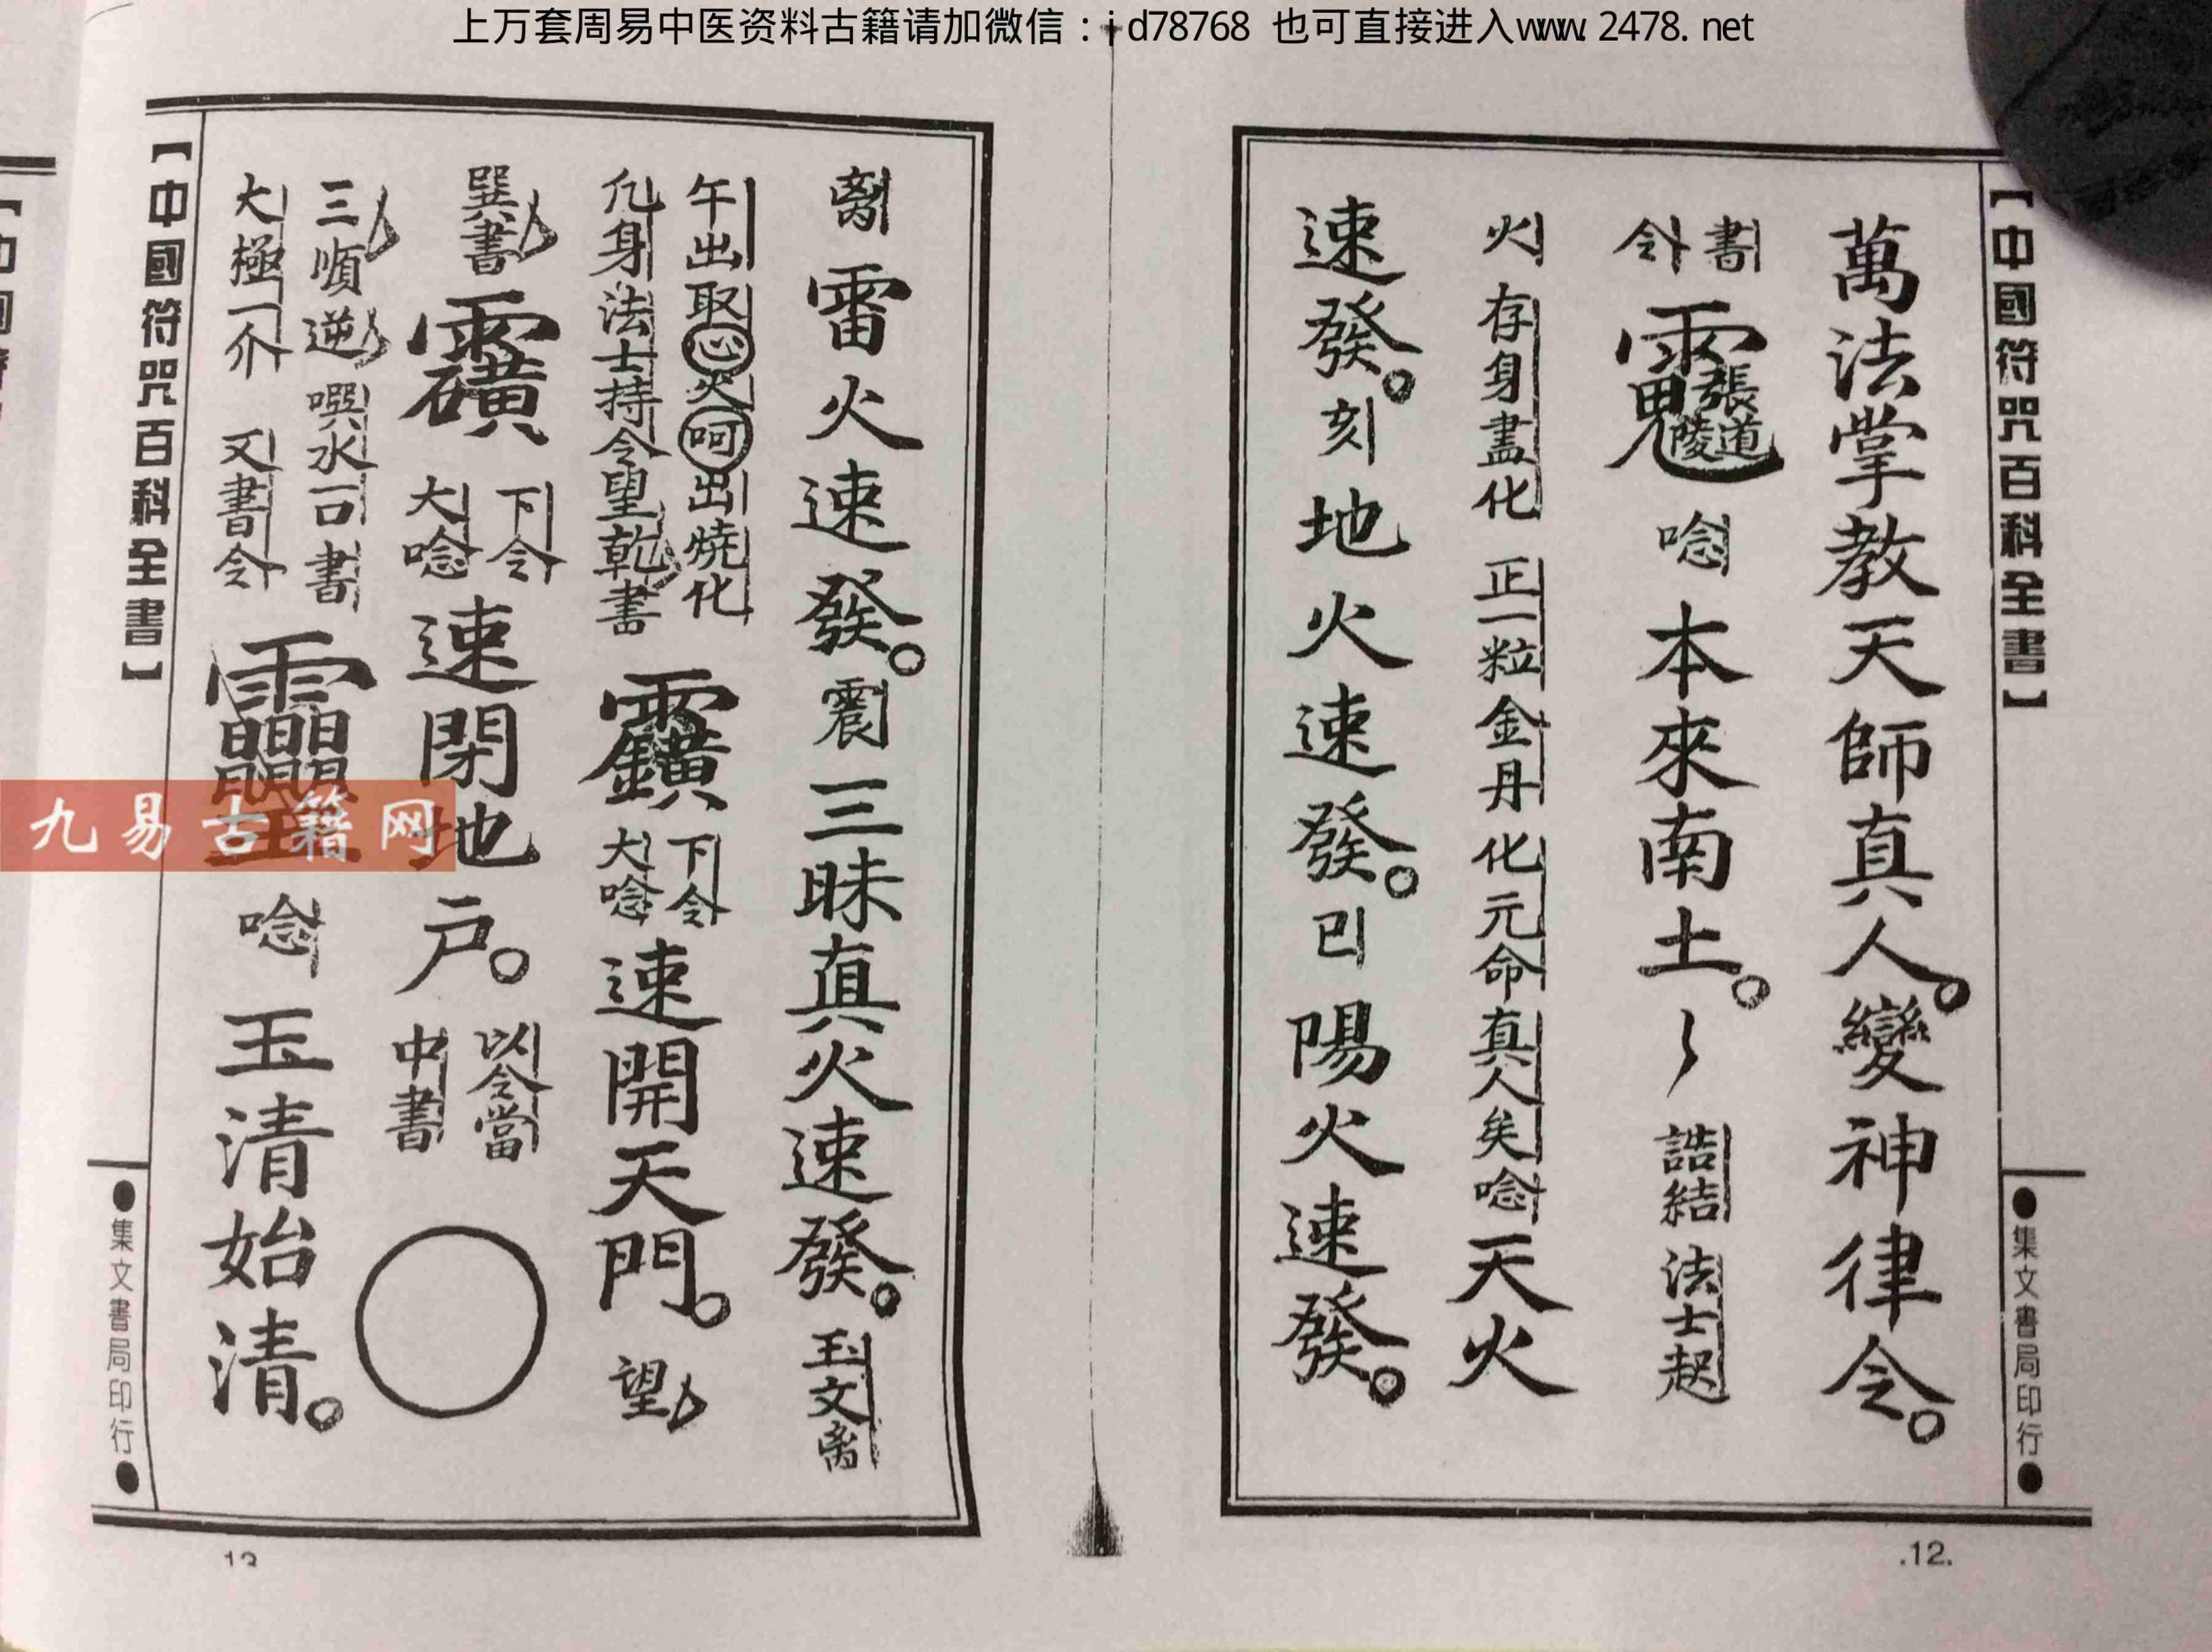 上万套周易中医资料古籍请加微信：j d78768 也可直接进入www.2478.net
【中國符咒百科全書】
●集文書局印行●
萬法掌教天師真人。變神律令。
書
令
張道陵
唸本來南土。
誥結法士起
火存身盡化正一粒金丹化元命真人矣唸天火
速發。刻地火速發。巳陽火速發。
.12.
离雷火速發。震三昧真火速發。玉文离
午出取心火呵出燒化
凢身法士持令望乾書
下令
大唸
速開天門。望
巽書
下令
大唸
速閉地户。
以令當
中書
三順逆噀水一口書
大極一介又書令
唸玉清始清。
【中國符咒百科全書】
●集文書局印行●
九易古籍网